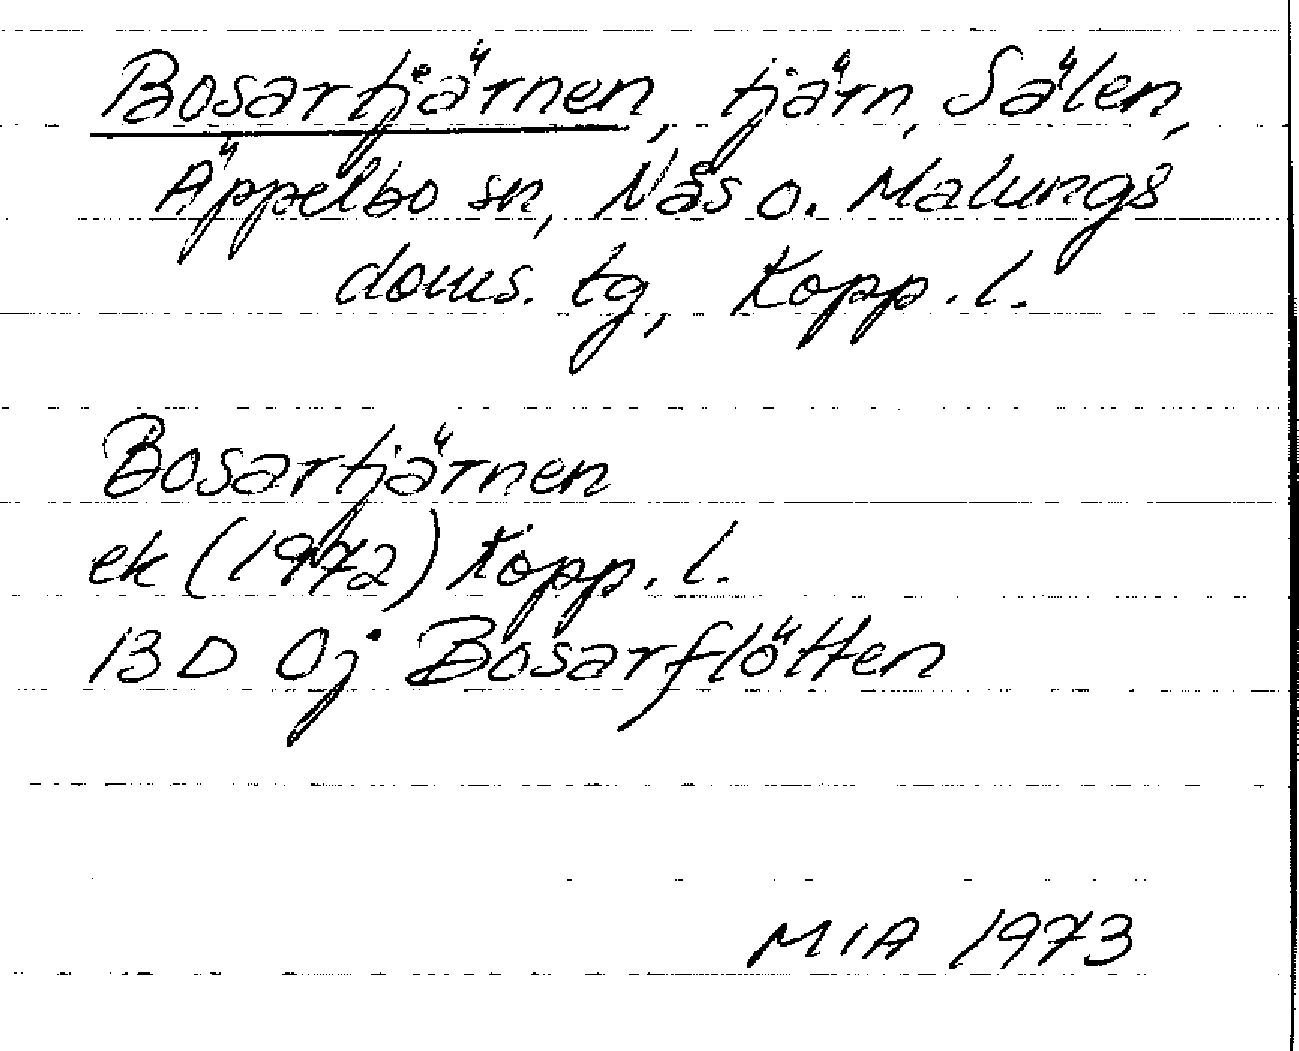 Bosartjärnen, tjärn, Sälen,
Äppelbo sn, Nås o. Malungs
doms. tg, Kopp. l.
Bosartjärnen
ek (1972) Kopp. l.
13 D 0j Bosarflötten
MIA 1973